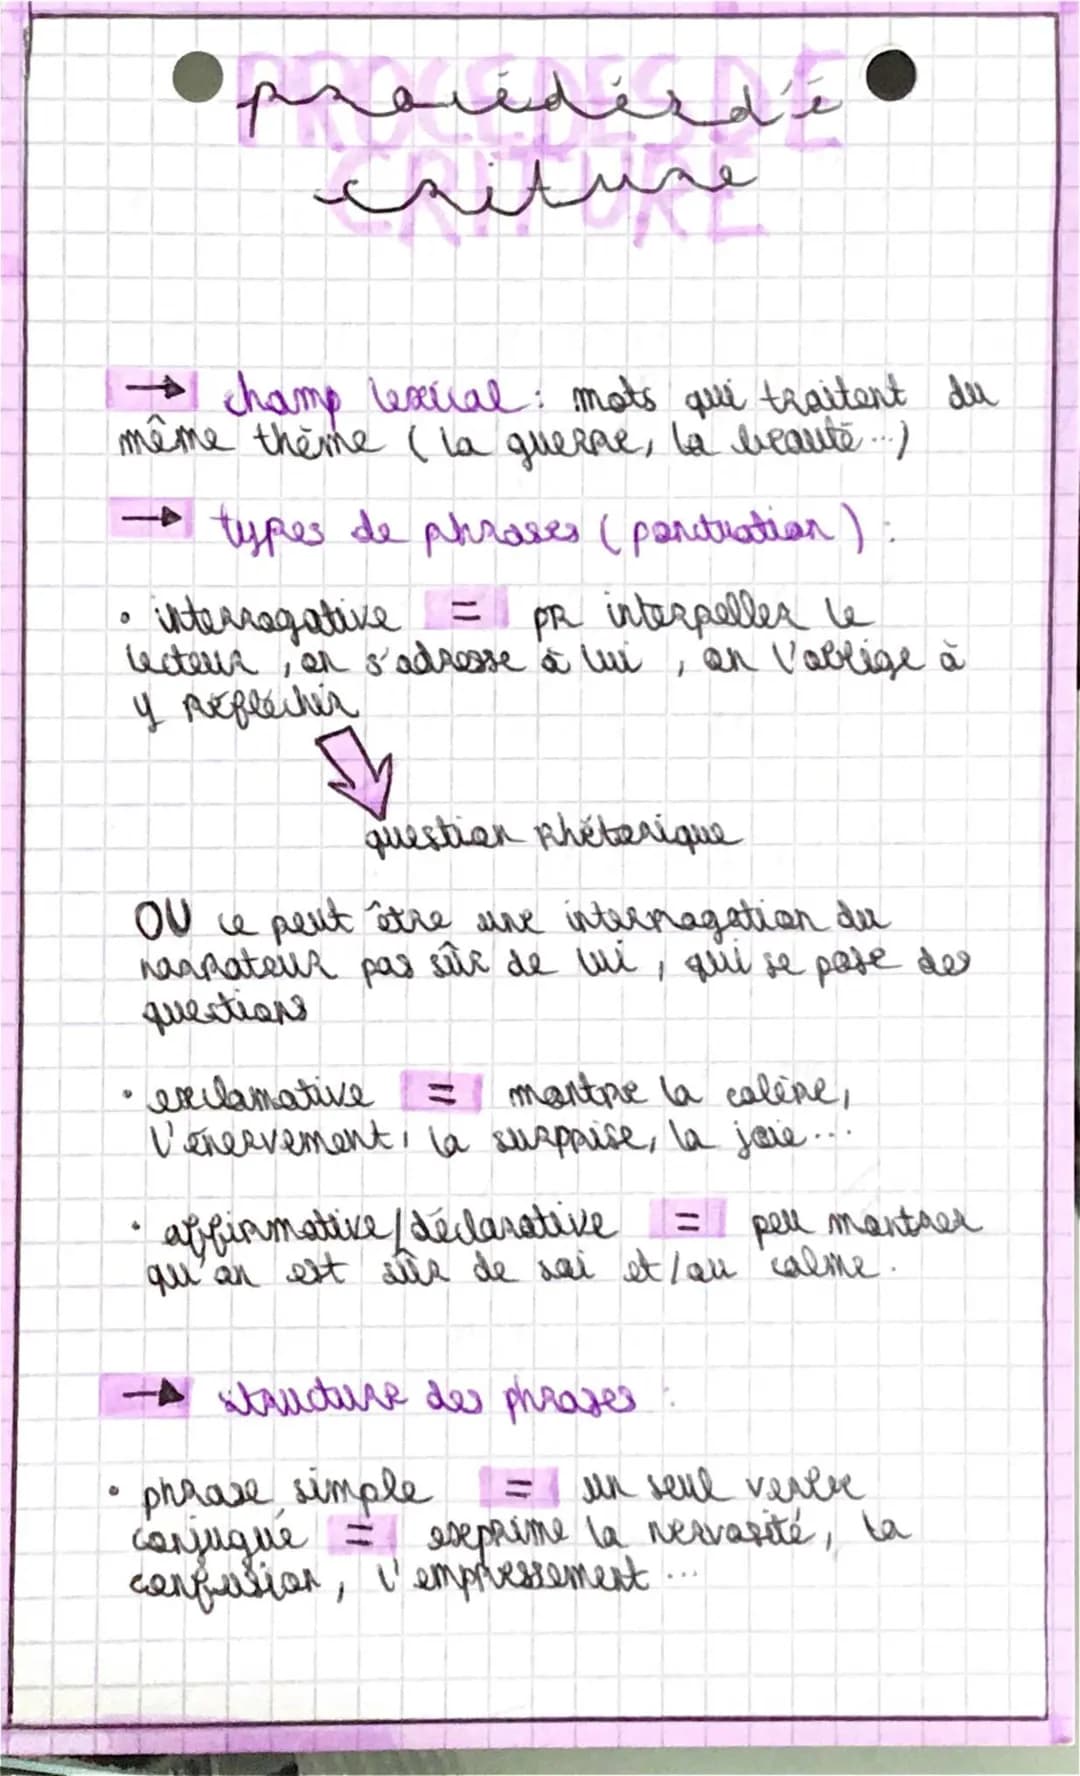 PROCEDES D'E
procédés d'é
CRITURE
criture
→ champ lexical : mots qui traitent du
même thème ( la guerre, la beauté ...)
→ types de phrases ( ponctuation ) :
• interrogative = pr interpeller le
lecteur , on s'adresse à lui , on l'oblige à
y réfléchir
question rhétorique
OU ce peut être une interrogation du
narrateur pas sûr de lui , qui se pose des
questions
• exclamative = montre la colère,
l'énervement, la surprise, la joie ...
• affirmative/déclarative = peu montrer
qu'on est sûr de soi et/ou calme.
→ structure des phrases :
• phrase simple = un seul verbe
conjugué = exprime la nervosité, la
confusion, l'empressement ...